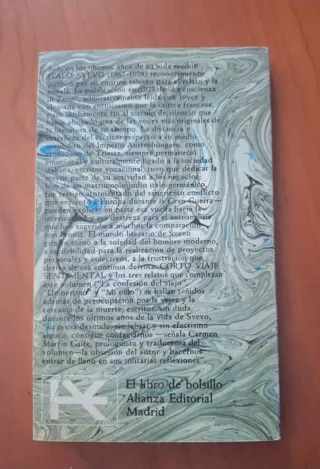 Sólo en los últimos años de su vida recibió
ITALO SVEVO (1861-1928) reconocimiento
público por su enorme talento para el relato y la
novela. La publicación en 1923 de «La coscienza
di Zeno», admirativamente leída por Joyce y
acogida con entusiasmo por la crítica francesa,
rompió el círculo de silencio que
había ahogado una de las voces más originales de
la literatura de su tiempo. La distancia y
del escritor respecto a su medio
súbdito del Imperio Austrohúngaro, como
ciudadano de Trieste, siempre permaneció
emocional y culturalmente ligado a la sociedad
italiana; escritor vocacional, tuvo que dedicar la
mayor parte de su actividad a los negocios;
hijo de un matrimonio judío italo-germánico,
fue testigo del sangriento conflicto
que enfrentó a Europa durante la Gran Guerra—
pueden explicar en parte esa vuelta hacia la
interioridad y esa destreza para el autoanálisis
que han sugerido a muchos la comparación
con Proust. El mundo literario de Svevo
gira en torno a la soledad del hombre moderno,
su debilidad para la realización de proyectos
personales y colectivos, a la frustración que
deriva de esa continua derrota. CORTO VIAJE
SENTIMENTAL y los tres relatos que completan
este volumen («La confesión del viejo»,
«Umbertino» y «Mi ocio») se hallan teñidos
además de preocupación por la vejez y la
cercanía de la muerte; escritos, sin duda,
durante los últimos años de la vida de Svevo,
«su prosa desnuda, sin labrar y sin efectismo
alguno, contrae contagiarnos —señala Carmen
Martín Gaite, prologuista y traductora del
volumen— la obsesión del autor y hacernos
entrar de lleno en sus solitarias reflexiones».
El libro de bolsillo
Alianza Editorial
Madrid